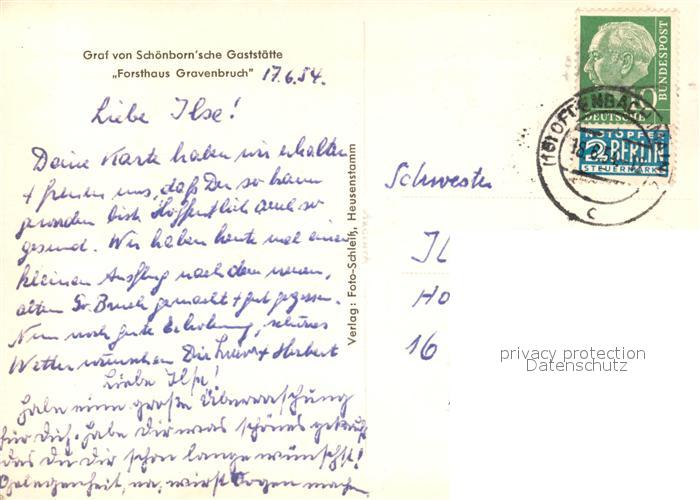 Graf von Schönborn'sche Gaststätte
„Forsthaus Gravenbruch" 17.6.54.
Liebe Ilse!
Deine Karte haben wir erhalten
+ freuen uns, daß Du so braun
geworden bist. Hoffentlich auch so
gesund. Wir haben heute mal einen
kleinen Ausflug nach dem neuen,
alten Gr. Bruch gemacht + gut gegessen.
Nun noch gute Erholung, schönes
Wetter wünschen Dir + Herbert
Liebe Ilse!
Habe eine große Überraschung
für Dich. Habe Dir was schönes gekauft
das du dir schon lange wünschst!
Gelegenheit, na, wirst Augen machen
Verlag: Foto-Schleiß, Heusenstamm
Schwester
Il
Ho
16
BUNDESPOST
DEUTSCHE
NOTOPFER
2 BERLIN
STEUERMARKE
(16) OFFENBACH
c
privacy protection
Datenschutz